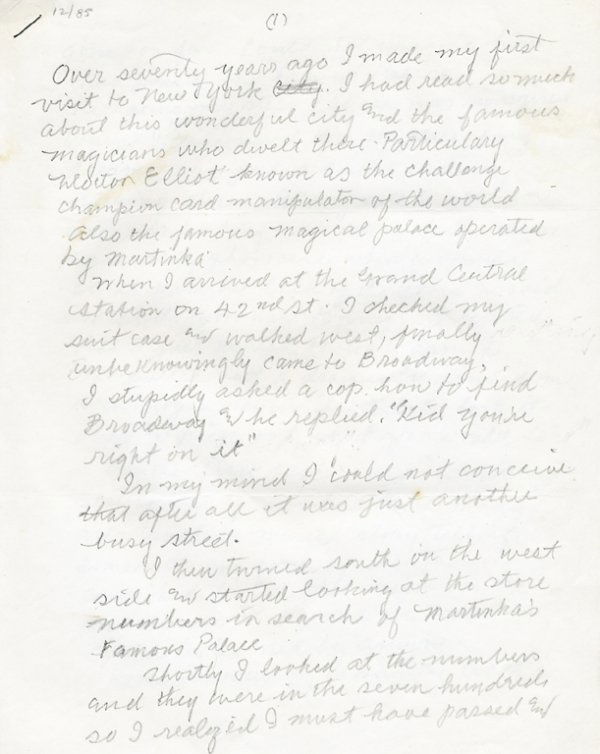 12/85
(1)
Over seventy years ago I made my first
visit to New York City. I had read so much
about this wonderful city and the famous
magicians who dwelt there. Particulary
Doctor Elliot known as the challenge
champion card manipulator of the world
also the famous magical palace operated
by Martinka
When I arrived at the Grand Central
Station on 42nd st. I checked my
suit case and walked west, finally
unbeknowingly came to Broadway,
I stupidly asked a cop how to find
Broadway and he replied, "Kid you're
right on it"
In my mind I could not conceive
that after all it was just another
busy street.
I then turned south on the west
side and started looking at the store
numbers in search of Martinka's
Famous Palace
Shortly I looked at the numbers
and they were in the seven hundreds
so I realized I must have passed and